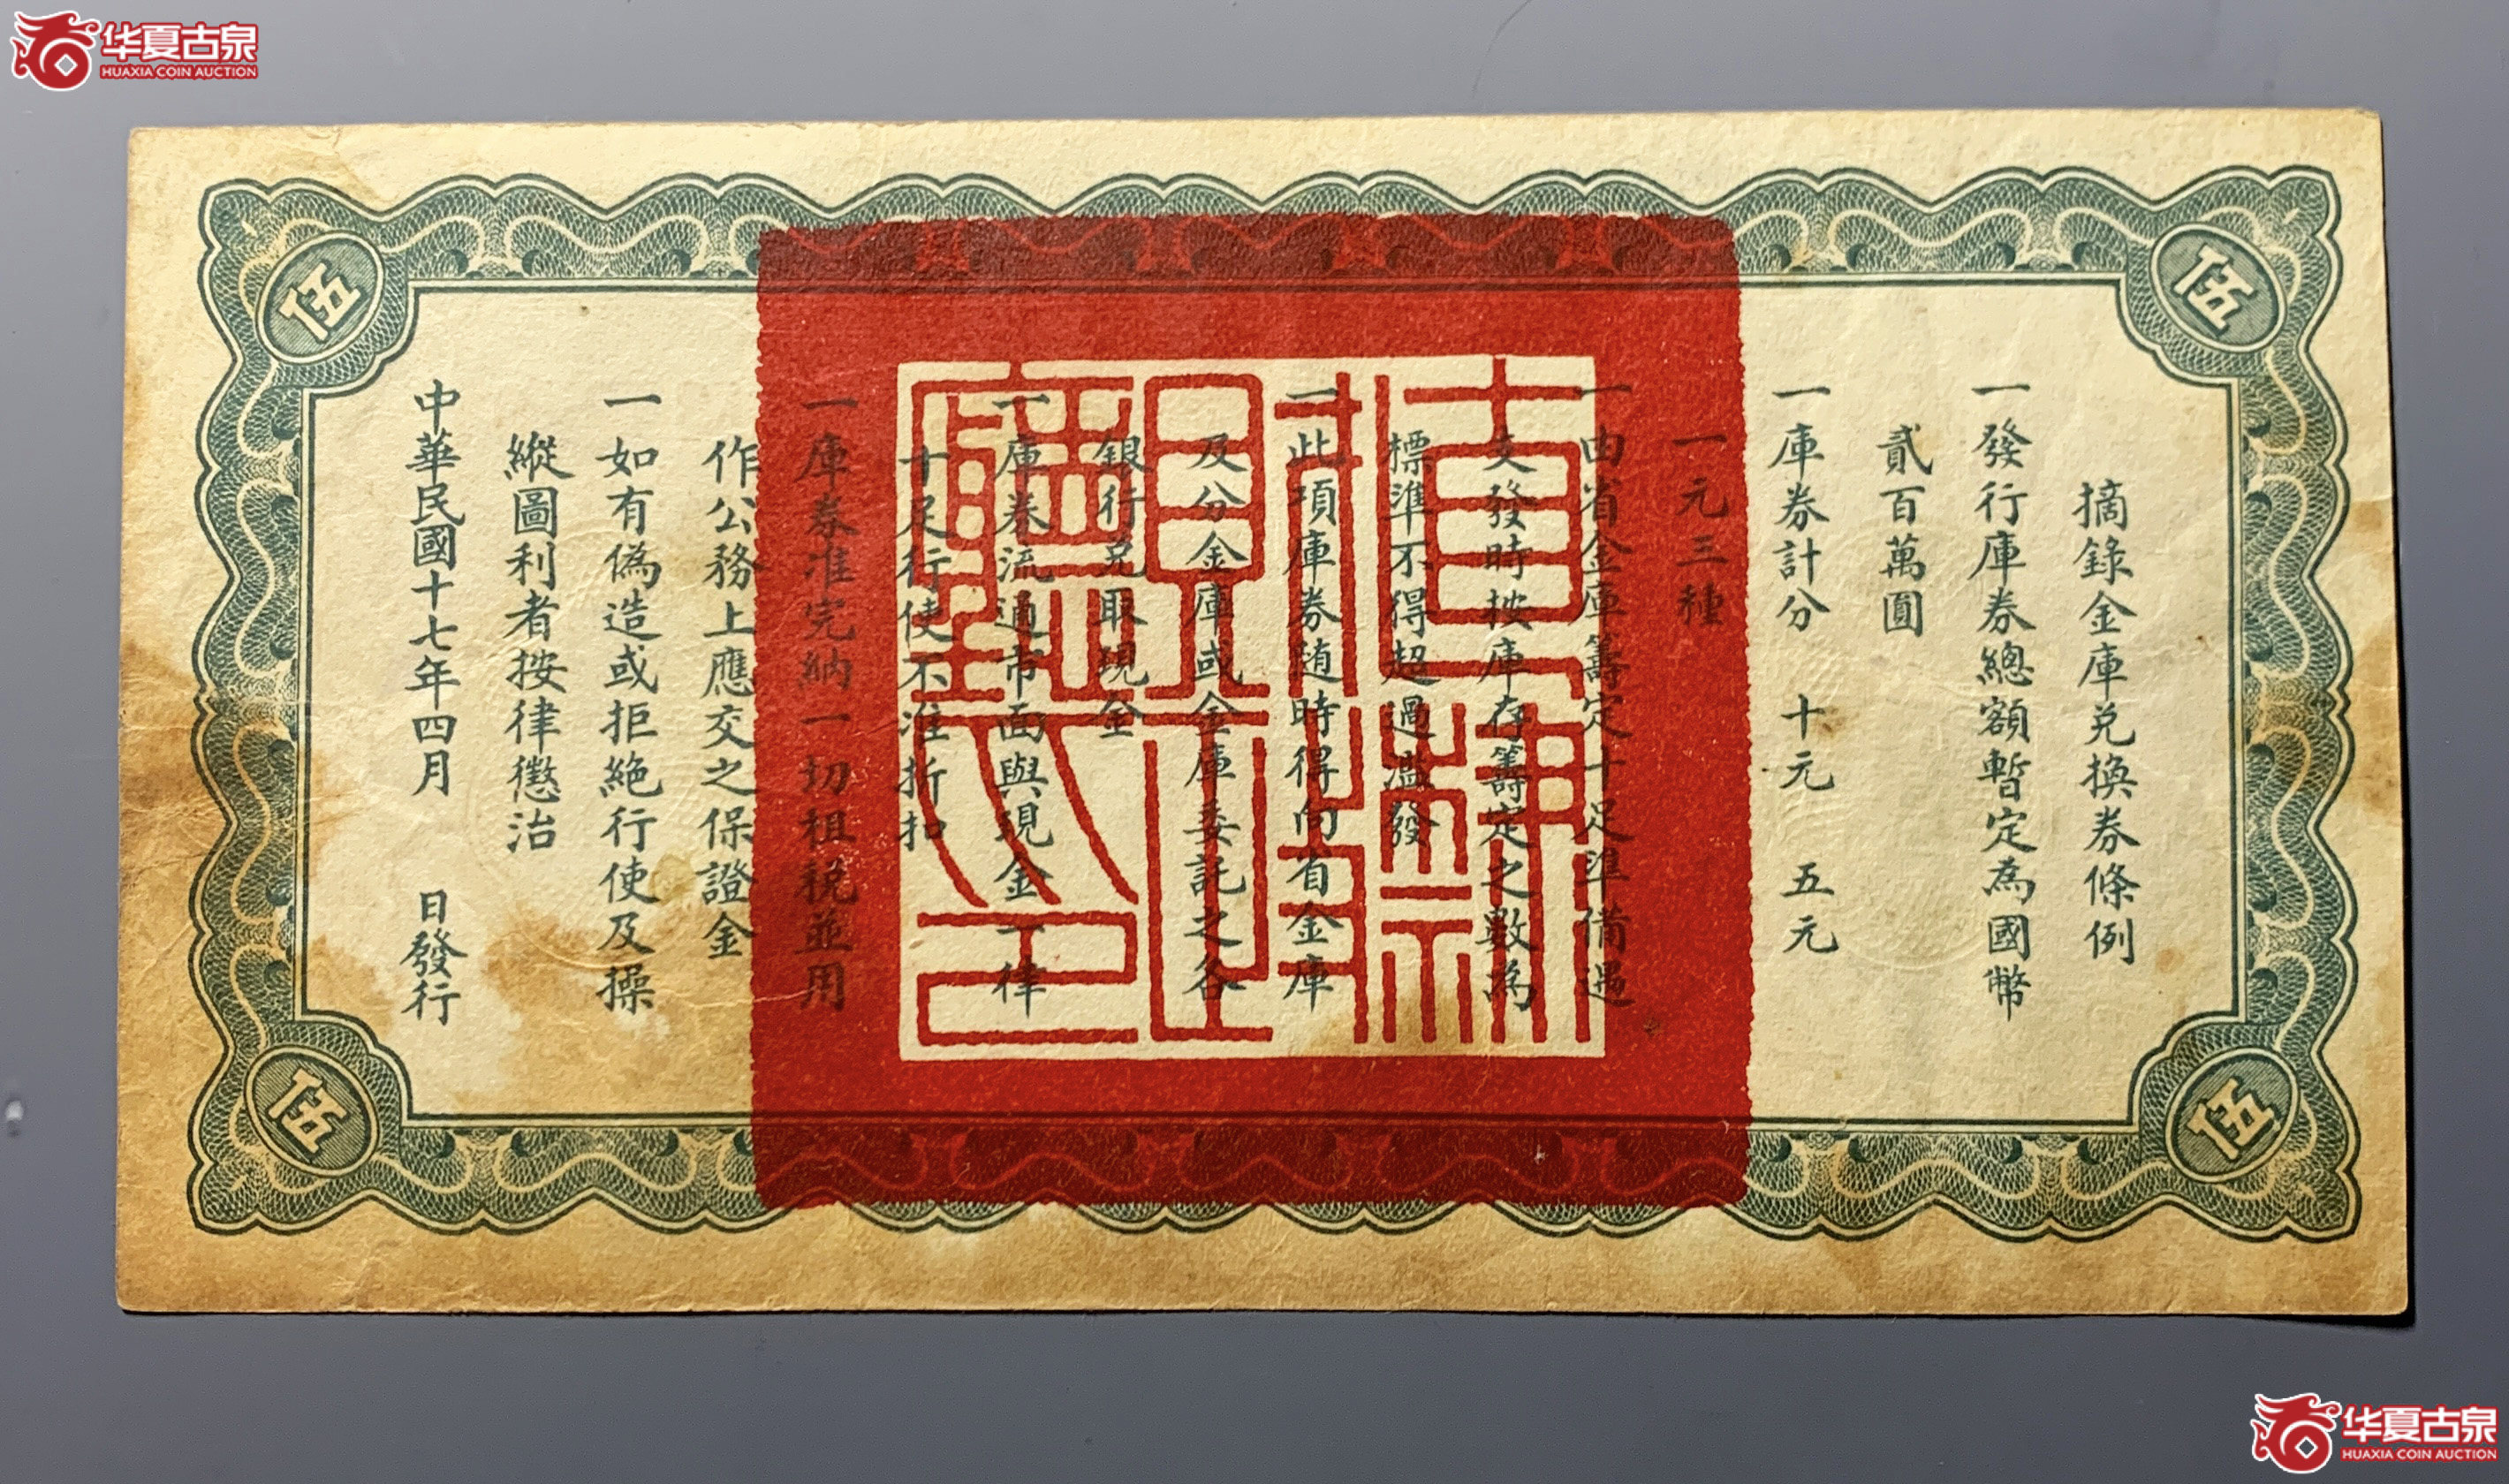 华夏古泉
HUAXIA COIN AUCTION
伍
伍
摘錄金庫兑換券條例
一發行庫券總額暫定為國幣
貳百萬圓
一庫券計分 十元 五元
一元三種
一由省金庫籌定十足準備遇
支發時按庫存籌定之數為
標準不得超過濫發
一此項庫券随時得向省金庫
及分金庫或金庫委託之各
銀行兑取現金
一庫券流通市面與現金一律
十足行使不准折扣
一庫券准完納一切租税並用
作公務上應交之保證金
一如有偽造或拒絶行使及操
縱圖利者按律懲治
中華民國十七年四月 日發行
直隸
財政
廳印
伍
伍
华夏古泉
HUAXIA COIN AUCTION